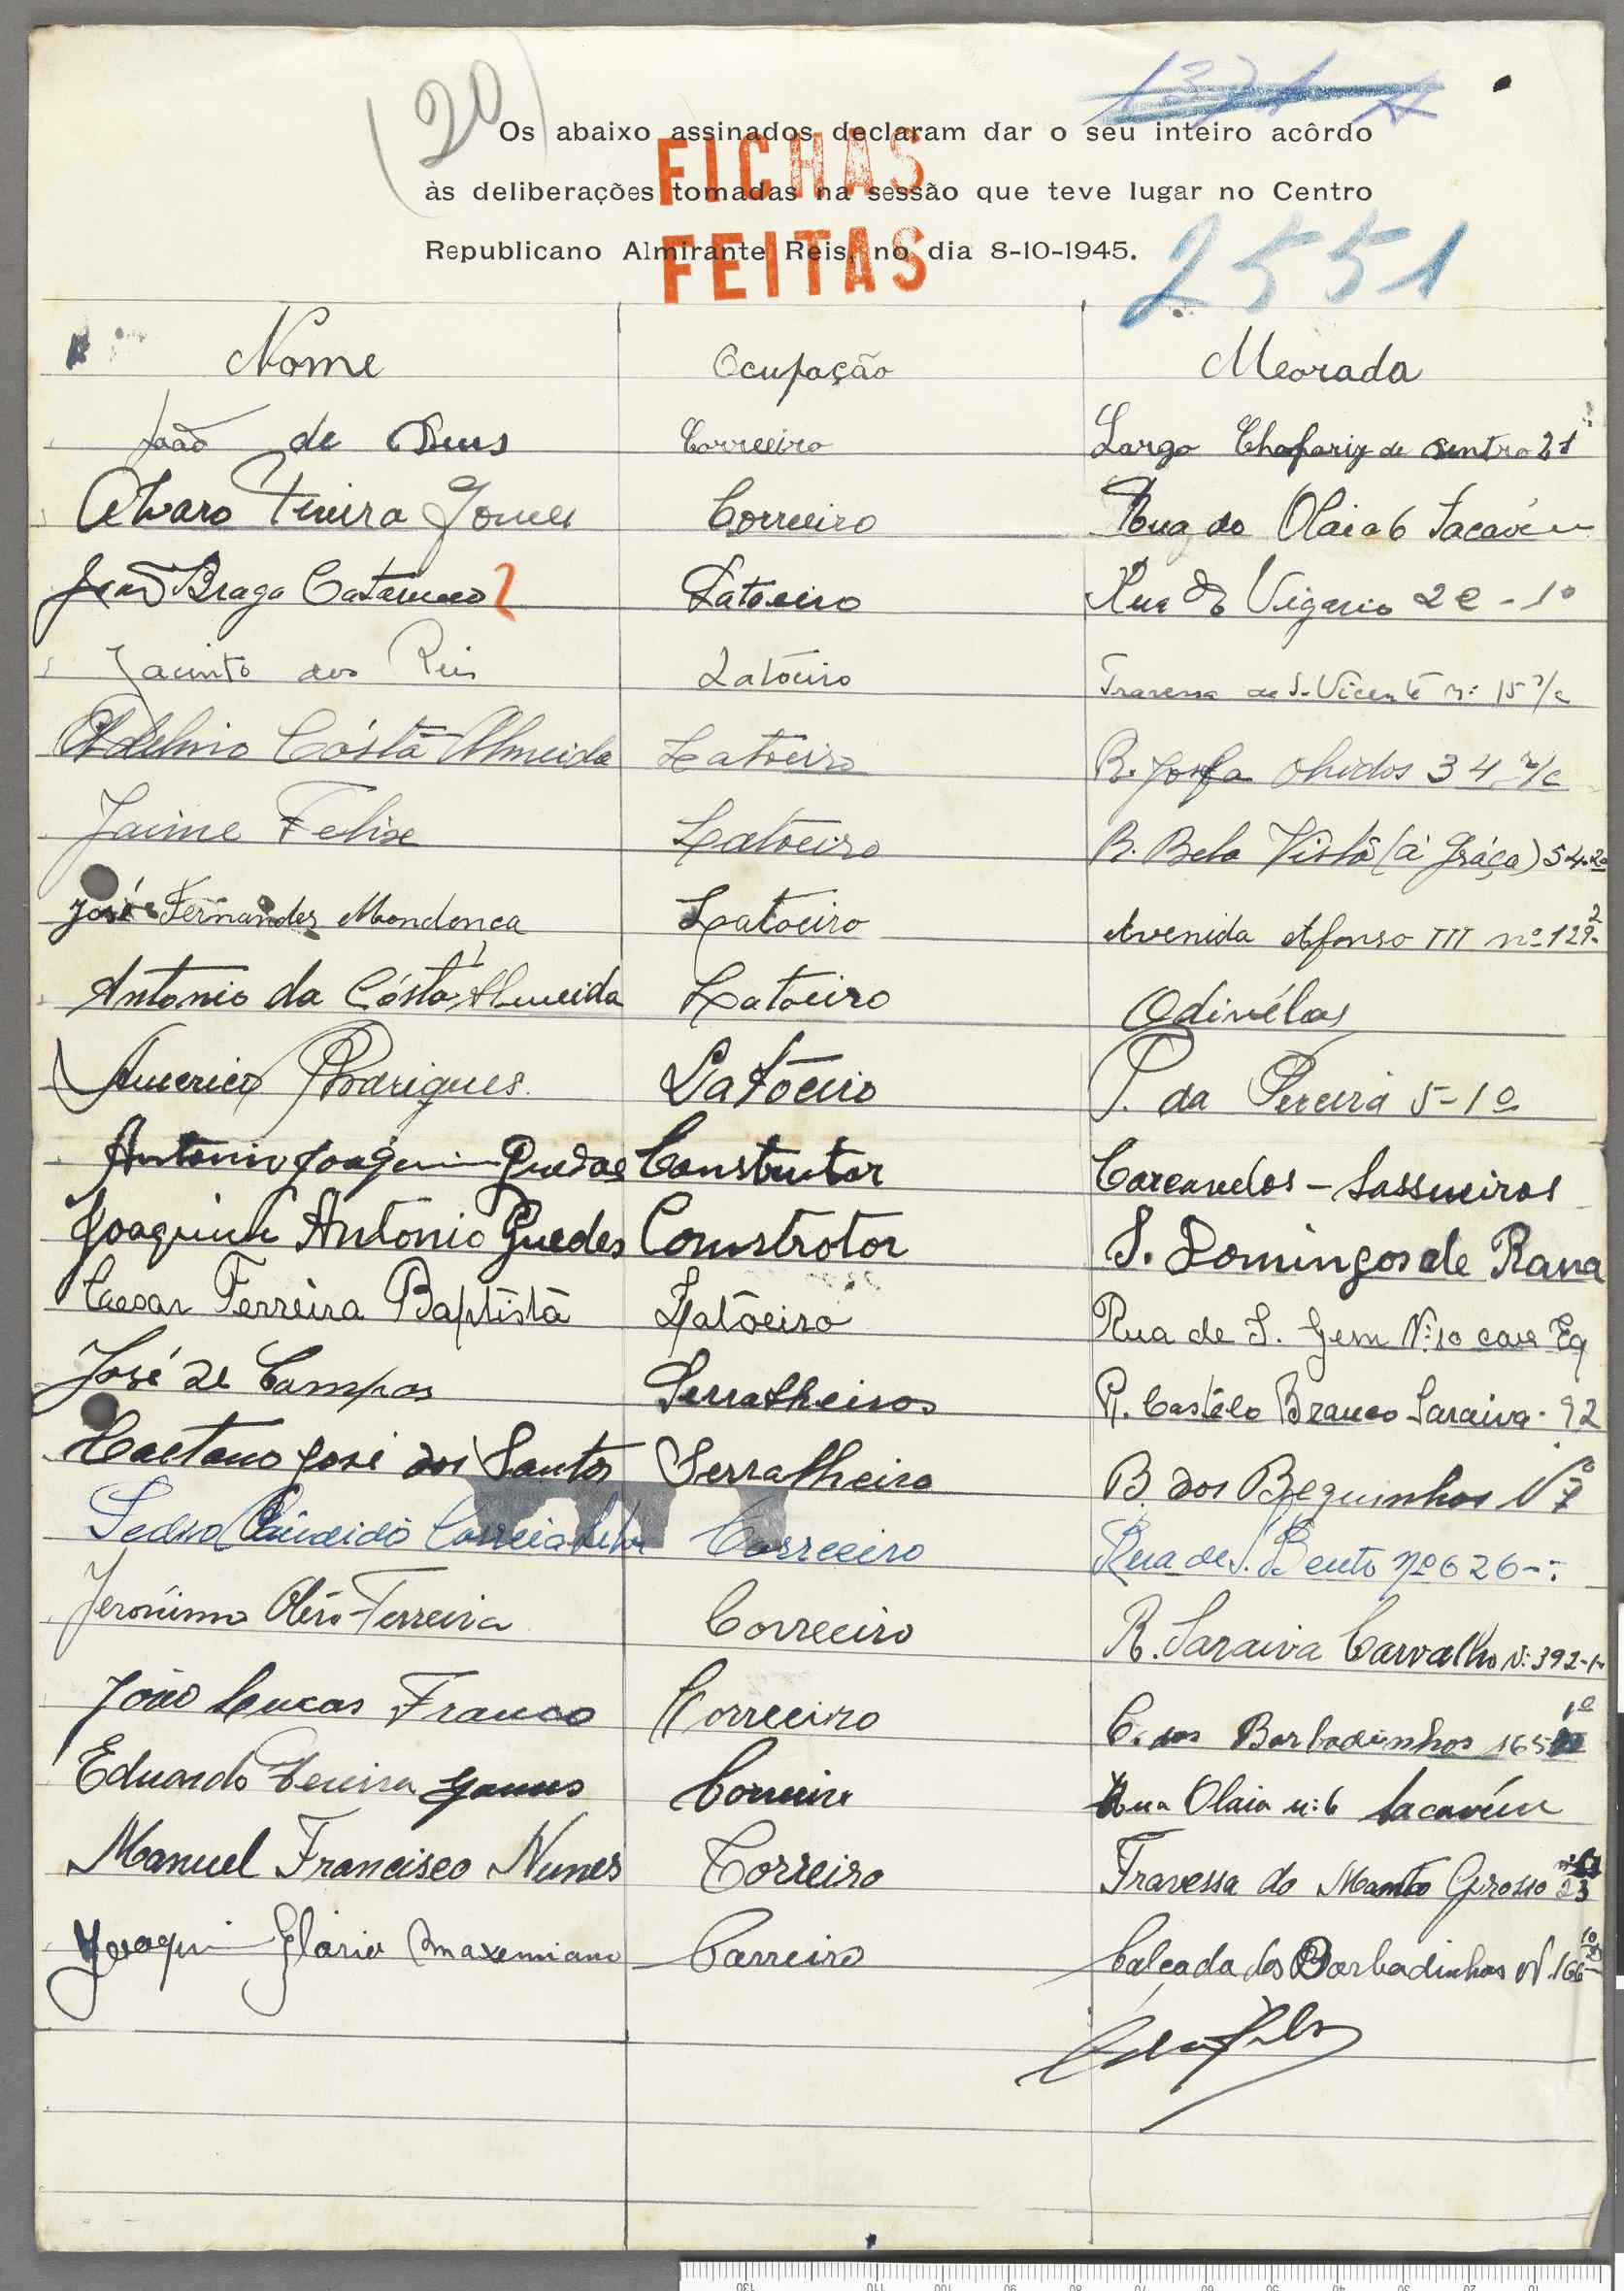 (20)
1371
Os abaixo assinados declaram dar o seu inteiro acôrdo
às deliberações tomadas na sessão que teve lugar no Centro
Republicano Almirante Reis, no dia 8-10-1945.
FICHAS
FEITAS
2551
Nome Ocupação Morada
João de Deus Correeiro Largo Chafariz de dentro 21
Alvaro Teixeira Gomes Correeiro Rua do Olaia 6 Sacavém
João Braga Latoeiro Rua do Vigario 22-1º
Jacinto dos Reis Latoeiro Travessa de S. Vicente nº 15 r/c
Adelino Cósta Almeida Latoeiro R. Josefa Obidos 34 r/c
Jaime Felix Latoeiro R. Bela Vistâ (á Gráça) 54-2º
José Fernandes Mendonca Latoeiro Avenida Afonso III nº 129-2
Antonio da Cósta Almeida Latoeiro Odivélas
Americo Rodrigues. Latoeiro T. da Pereira 5-1º
Antonio Joaquim Guedes Construtor Carcavelos - Sassueiros
Joaquim Antonio Guedes Construtor S. Domingos de Rana
Cesar Ferreira Baptista Latoeiro Rua de S. Gem Nº 10 cave Eq
José de Campos Serralheiros R. Castélo Branco Saraiva - 92
Caetano José dos Santos Serralheiro B. dos Bequinhos Nº 7
Pedro Candido Correia Silva Correeiro Rua de S. Bento nº 626
Jerónimo Ferreira Correeiro R. Saraiva Carvalho Nº 392-1º
João Lucas Franco Correeiro C. dos Barbadinhos 165 1º
Eduardo Teixeira Gomes Correeiro Rua Olaia nº 6 Sacavém
Manuel Francisco Nunes Correiro Travessa do Monto Grosso nº 23
Joaquim Maxemiano Carreiro Calçada dos Barbadinhos N. 166